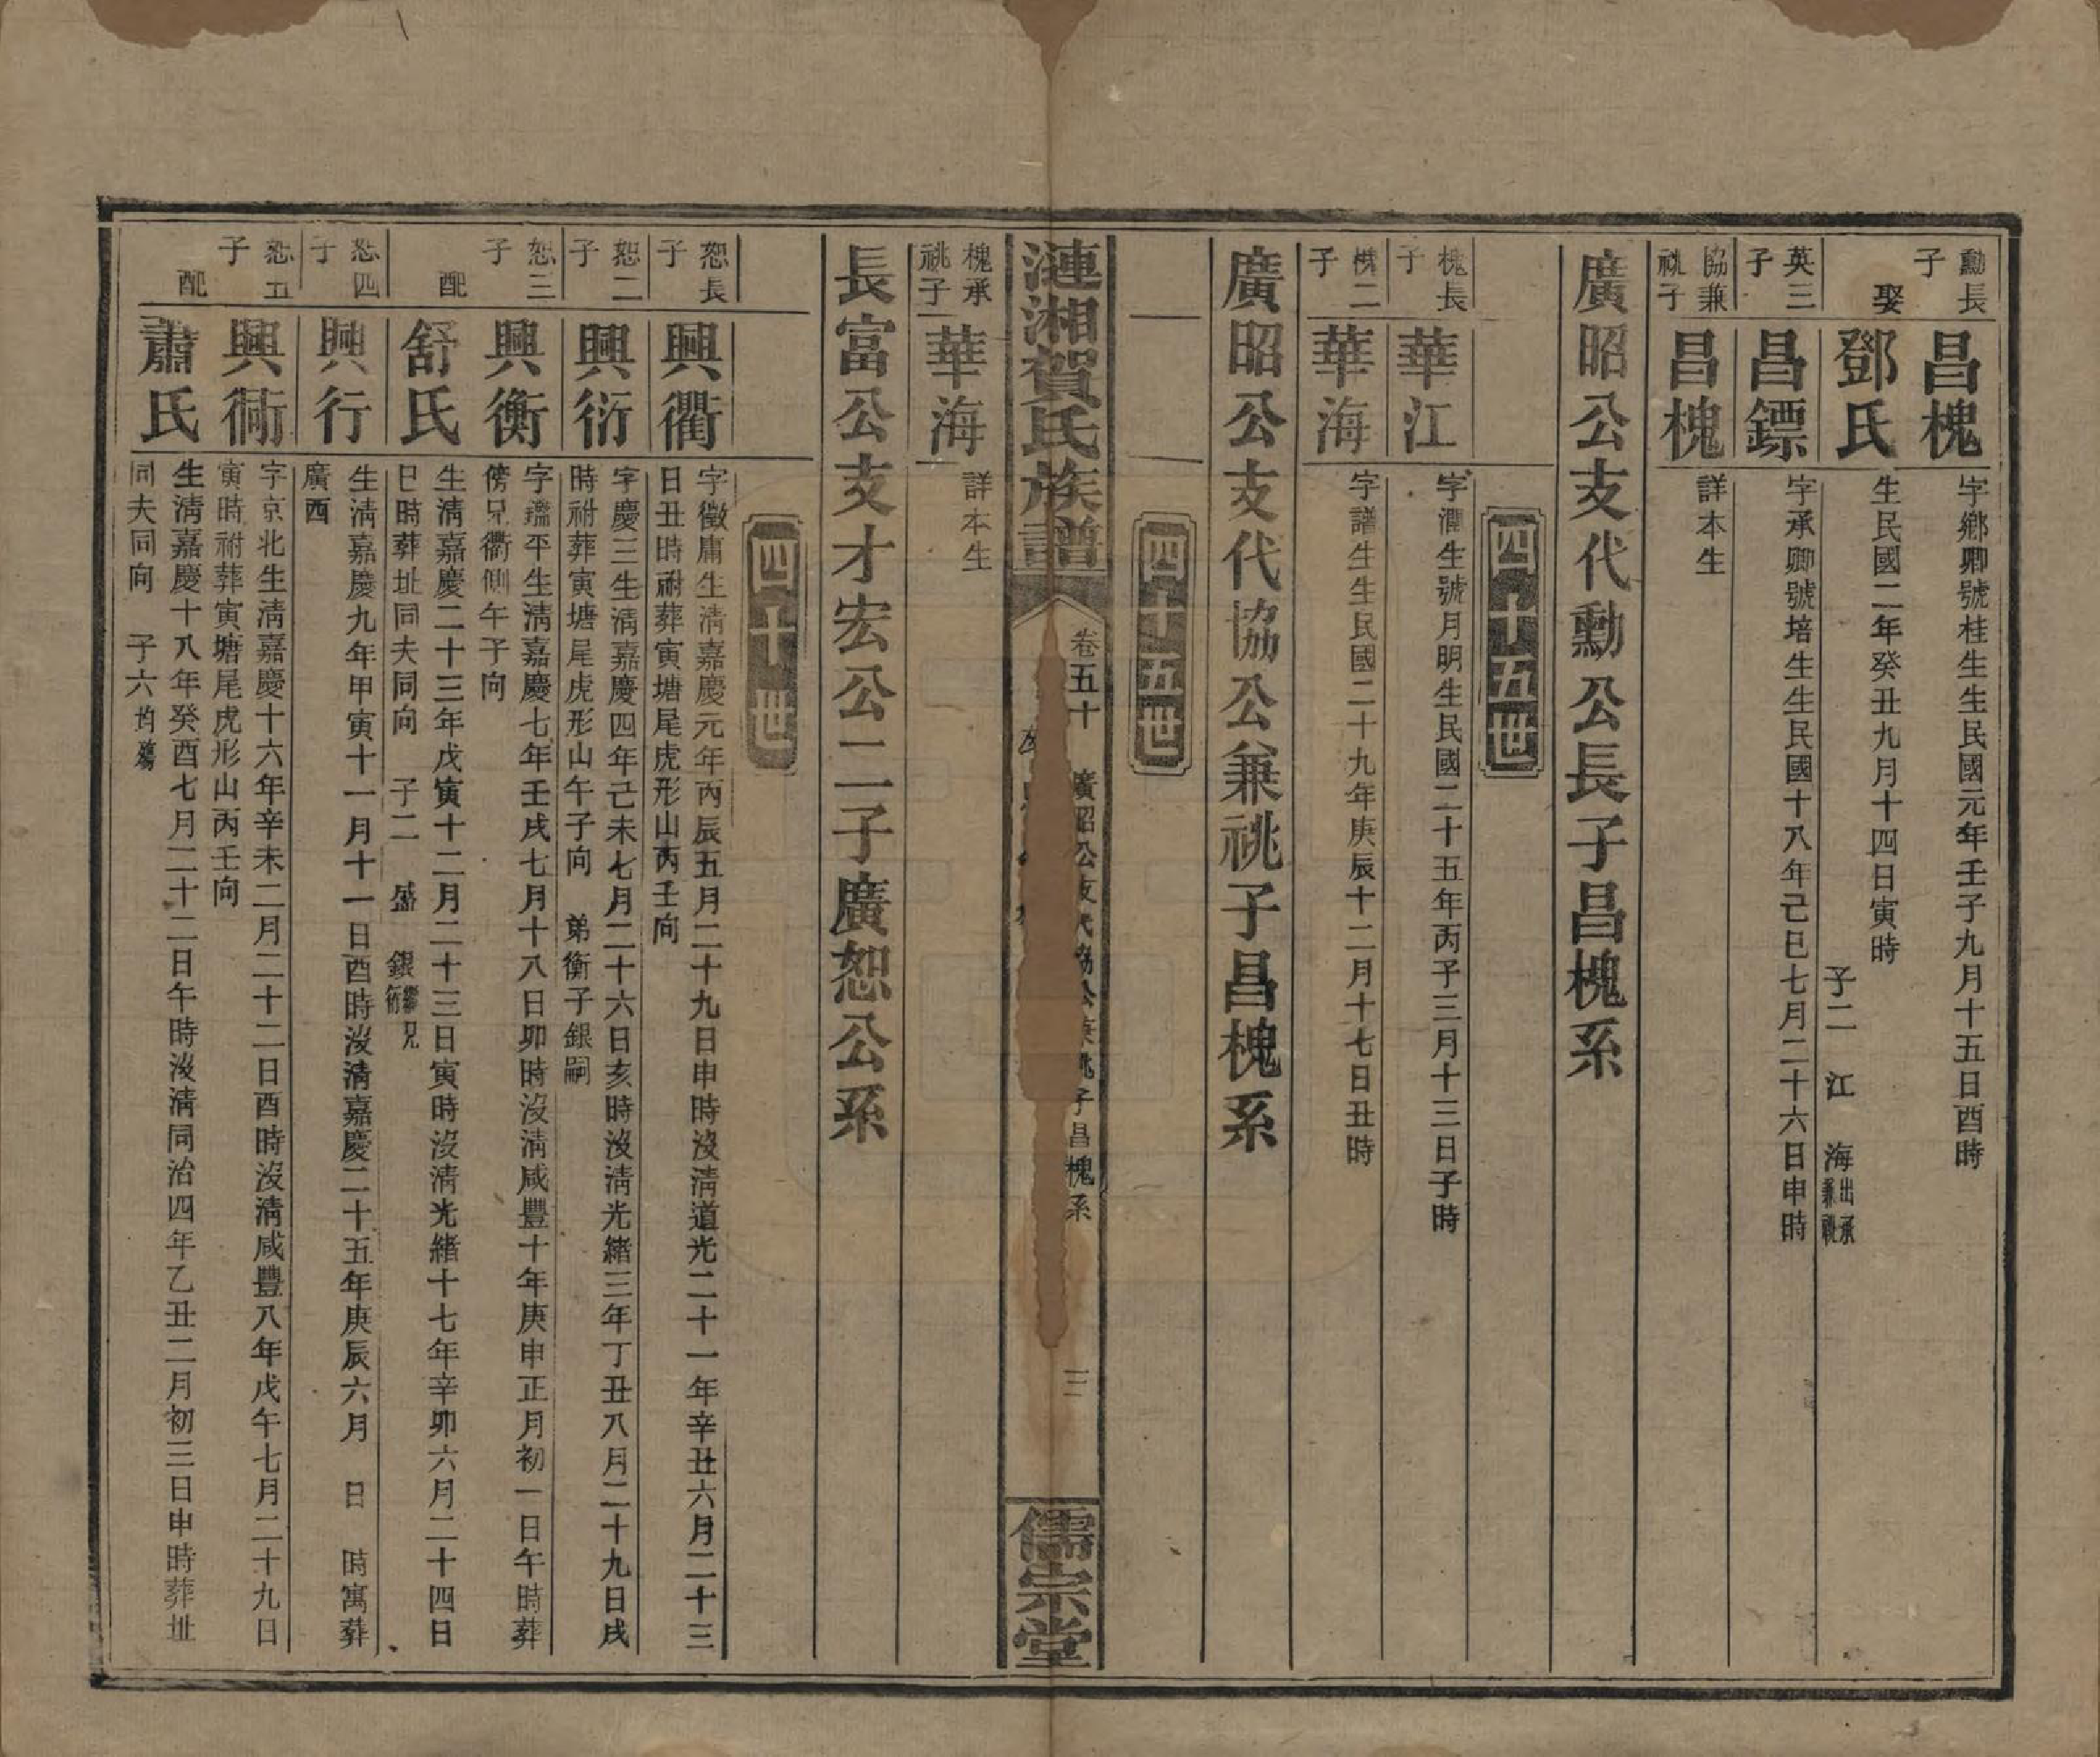 勳長子
昌槐
字鄉卿號桂生生民國元年壬子九月十五日酉時
娶
鄧氏
生民國二年癸丑九月十四日寅時
子二 江 海出承兼祧
英三子
昌鏢
字承卿號培生生民國十八年己巳七月二十六日申時
協兼祧子
昌槐
詳本生
廣昭公支代勳公長子昌槐系
四十五世
槐長子
華江
字潤生號月明生民國二十五年丙子三月十三日子時
槐二子
華海
字譜生生民國二十九年庚辰十二月十七日丑時
廣昭公支代協公兼祧子昌槐系
四十五世
漣湘賀氏族譜
卷五十
廣昭公支代協公兼祧子昌槐系
三
儒宗堂
槐承祧子
華海
詳本生
長富公支才宏公二子廣恕公系
四十世
恕長子
興衢
字徵庸生清嘉慶元年丙辰五月二十九日申時沒清道光二十一年辛丑六月二十三
日丑時祔葬寅塘尾虎形山丙壬向
恕二子
興衍
字慶三生清嘉慶四年己未七月二十六日亥時沒清光緒三年丁丑八月二十九日戌
時祔葬寅塘尾虎形山午子向 弟衡子銀嗣
恕三子
興衡
字鑑平生清嘉慶七年壬戌七月十八日卯時沒清咸豐十年庚申正月初一日午時葬
傍兄衢側午子向
配
舒氏
生清嘉慶二十三年戊寅十二月二十三日寅時沒清光緒十七年辛卯六月二十四日
巳時葬址同夫同向 子二 盛 銀繼兄衍
恕四子
興行
生清嘉慶九年甲寅十一月十一日酉時沒清嘉慶二十五年庚辰六月 日 時寓葬
廣西
恕五子
興衕
字京北生清嘉慶十六年辛未二月二十二日酉時沒清咸豐八年戊午七月二十九日
寅時祔葬寅塘尾虎形山丙壬向
配
蕭氏
生清嘉慶十八年癸酉七月二十二日午時沒清同治四年乙丑二月初三日申時葬址
同夫同向 子六均殤